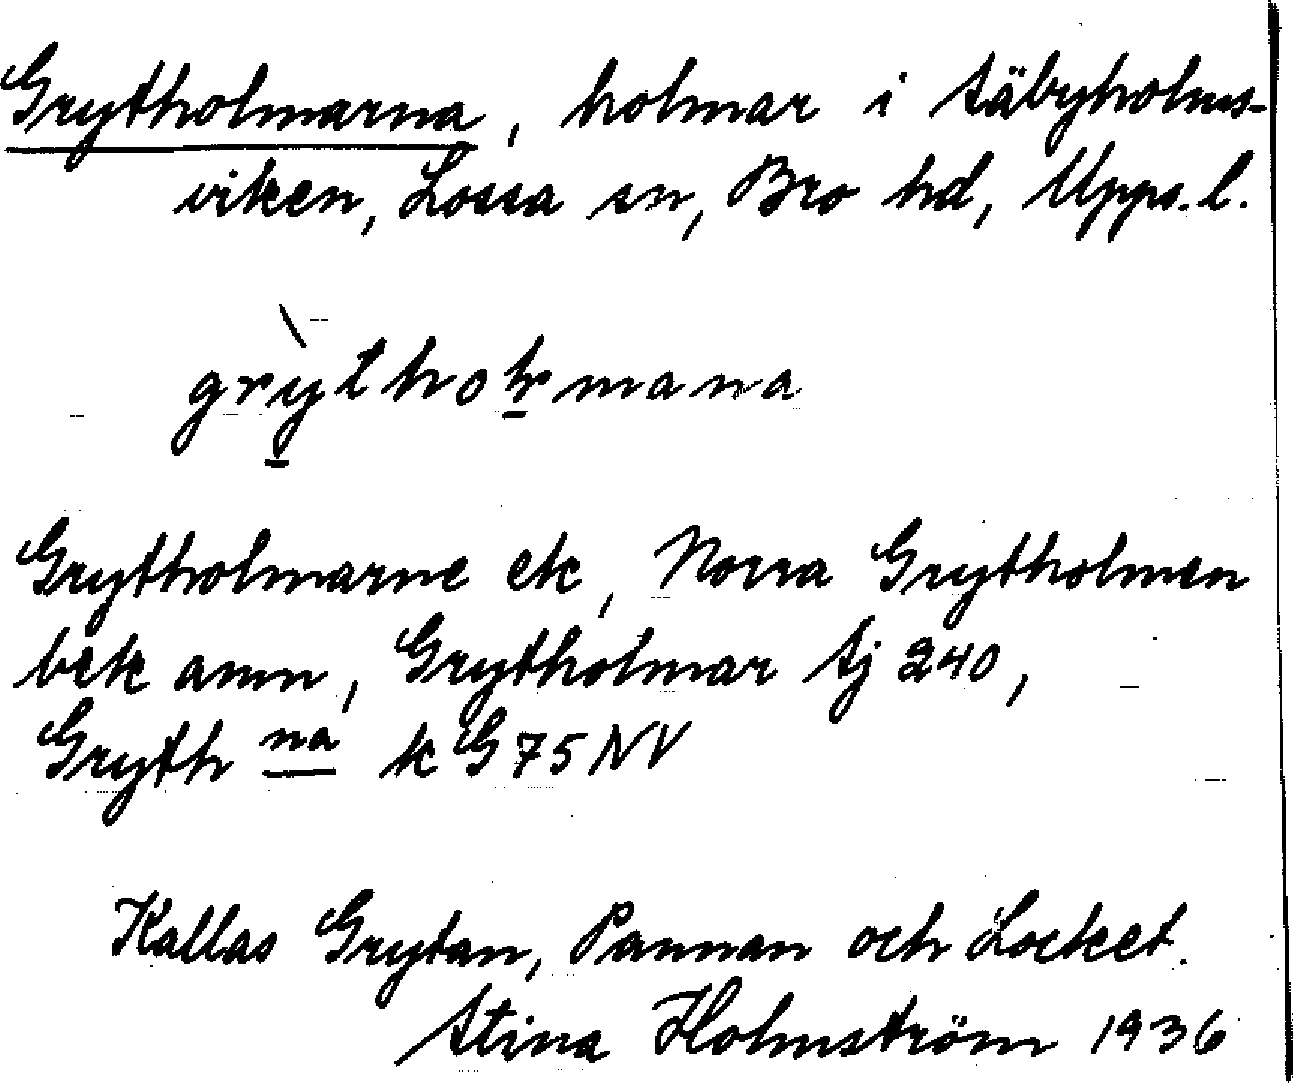 Grytholmarna, holmar i Säbyholms-
viken, Lossa sn, Bro hd, Upps. l.
grỳthoḻmana
Grytholmarne ek, Norra Grytholmen
bek anm, Grytholmar Sj 240,
Gryth na k G 75 NV
Kallas Grytan, Pannan och Locket.
Stina Holmström 1936